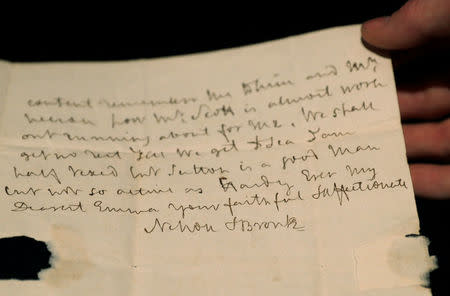 content remember me
person poor Mr Scott is almost work
out running about for me. We shall
get no rest till we get to Sea I am
half vexed but Sutton is a good man
but not so active as Hardy Ever my
Dearest Emma your faithful & affectionate
Nelson & Bronte